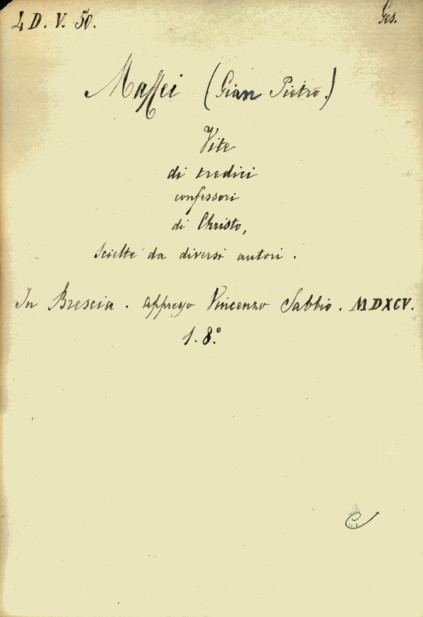 4 D. V. 50.
Ges.
Maffei (Gian Pietro.)
Vite
di tredici
confessori
di Christo,
scielte da diversi autori.
In Brescia. appresso Vincenzo Sabbio. MDXCV.
1. 8.°